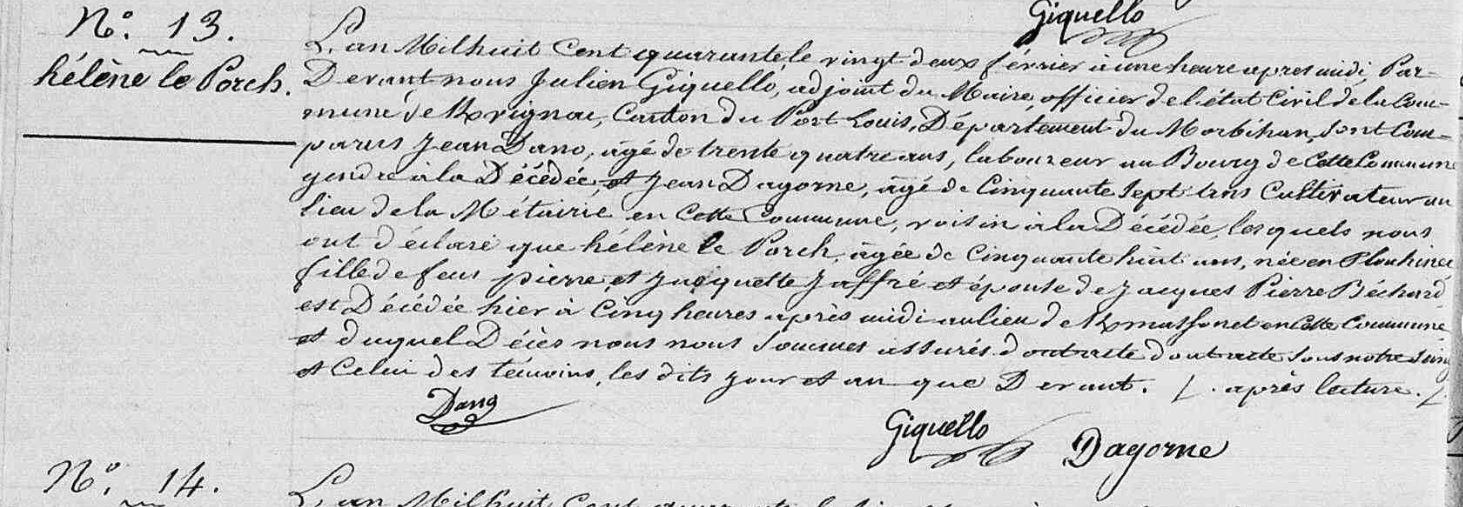 Giquello
N.° 13.
hélène le Porch.
L'an Milhuit Cent quarante, le vingt deux février à une heure apres midi, Par-
Devant nous Julien Giquello, adjoint du Maire officier de l'état Civil de la Com-
mune de Kvignac, Canton du Port Louis, Département du Morbihan, sont Com-
parus Jean Dano, âgé de trente quatre ans, laboureur au Bourg de Cette Commune
gendre à la Décédée, et Jean Dagorne, âgé de Cinquante Sept ans Cultivateur au
lieu de la Métairie en Cette Commune, voisin à la Décédée, les quels nous
ont déclaré que hélène le Porch, âgée de Cinquante huit ans, née en Plouhinec
fille de feus pierre et Jacquette Jaffré et épouse de Jacques Pierre Béchard
est Décédée hier à Cinq heures après midi au lieu de Kmassonet en Cette Commune
et duquel Décès nous nous Sommes assurés. dont acte dont acte sous notre Seing
et Celui des témoins, les dits jour et an que Devant. /. après lecture. /.
Dano
Giquello
Dagorne
N.° 14.
L'an Milhuit Cent quarante